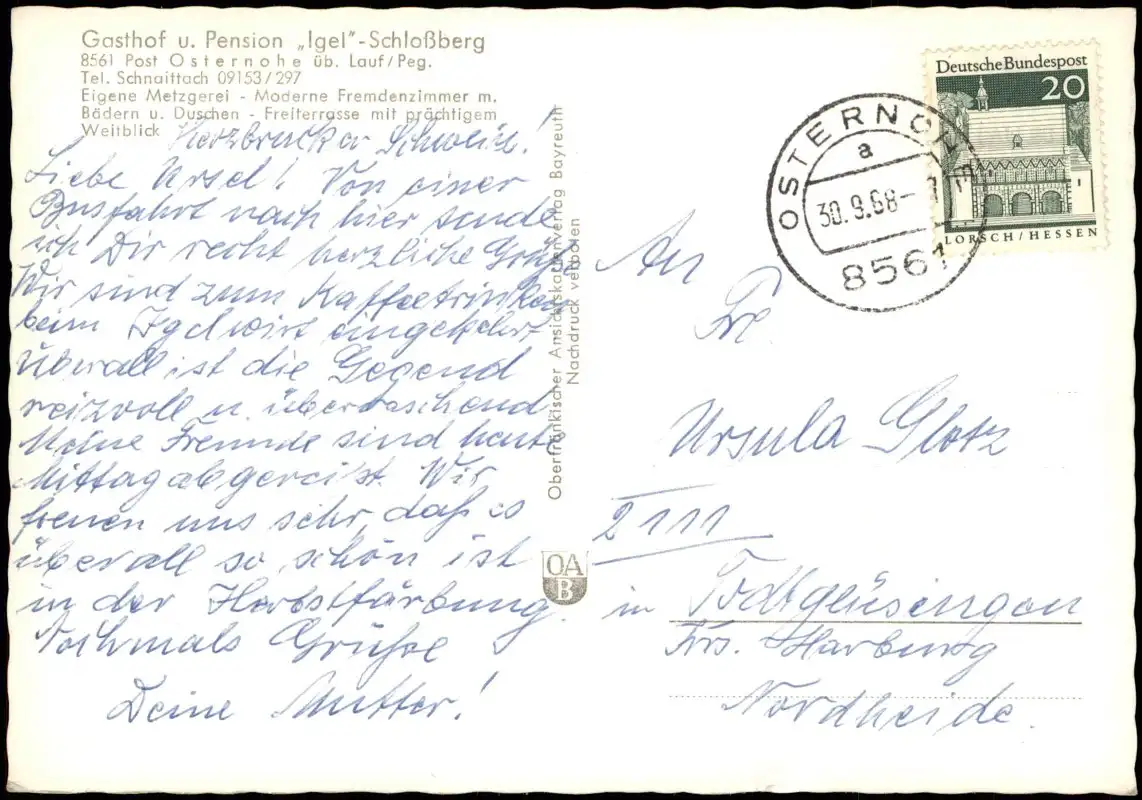 Gasthof u. Pension „Igel"-Schloßberg
8561 Post Osternohe üb. Lauf/Peg.
Tel. Schnaittach 09153/297
Eigene Metzgerei - Moderne Fremdenzimmer m.
Bädern u. Duschen - Freiterrasse mit prächtigem
Weitblick
Herzbrucker Schweiz!
Liebe Ursel! Von einer
Busfahrt nach hier sende
ich Dir recht herzliche Grüße
Wir sind zum Kaffeetrinken
beim Igelwirt eingekehrt
Überall ist die Gegend
reizvoll u. überraschend
Meine Freunde sind heute
Mittag abgereist. Wir
freuen uns sehr, daß es
überall so schön ist
in der Herbstfärbung.
Nochmals Grüße
Deine Mutter!
Oberfränkischer Ansichtskartenverlag Bayreuth
Nachdruck verboten
OA
B
Deutsche Bundespost
20
LORSCH/HESSEN
OSTERNOHE
a
30.9.68-
8561
An
Frl
Ursula Glotz
2111
in Todtglüsingen
Krs. Harburg
Nordheide.